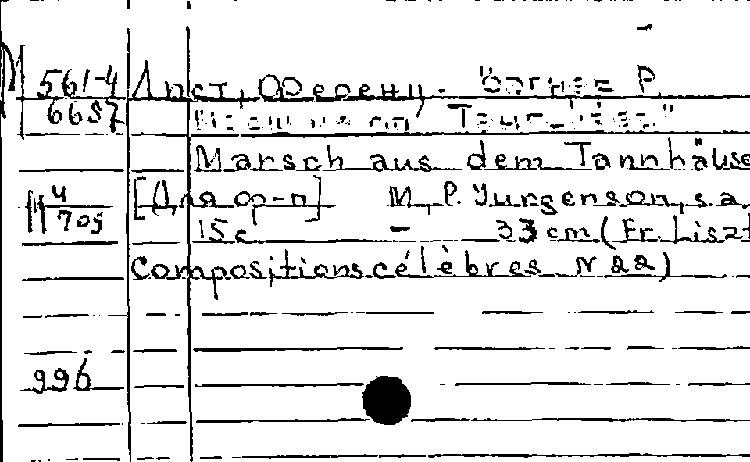 М 561-4 Лист, Ференц. Вагнер Р.
6687 "Тангейзер"
Marsch aus dem Tannhäuse
М 4/705 [Для ор-п] M., P. Jurgenson, s.a.
15 c. - 33 cm (Fr. Liszt
Compositions célèbres N 22)
996